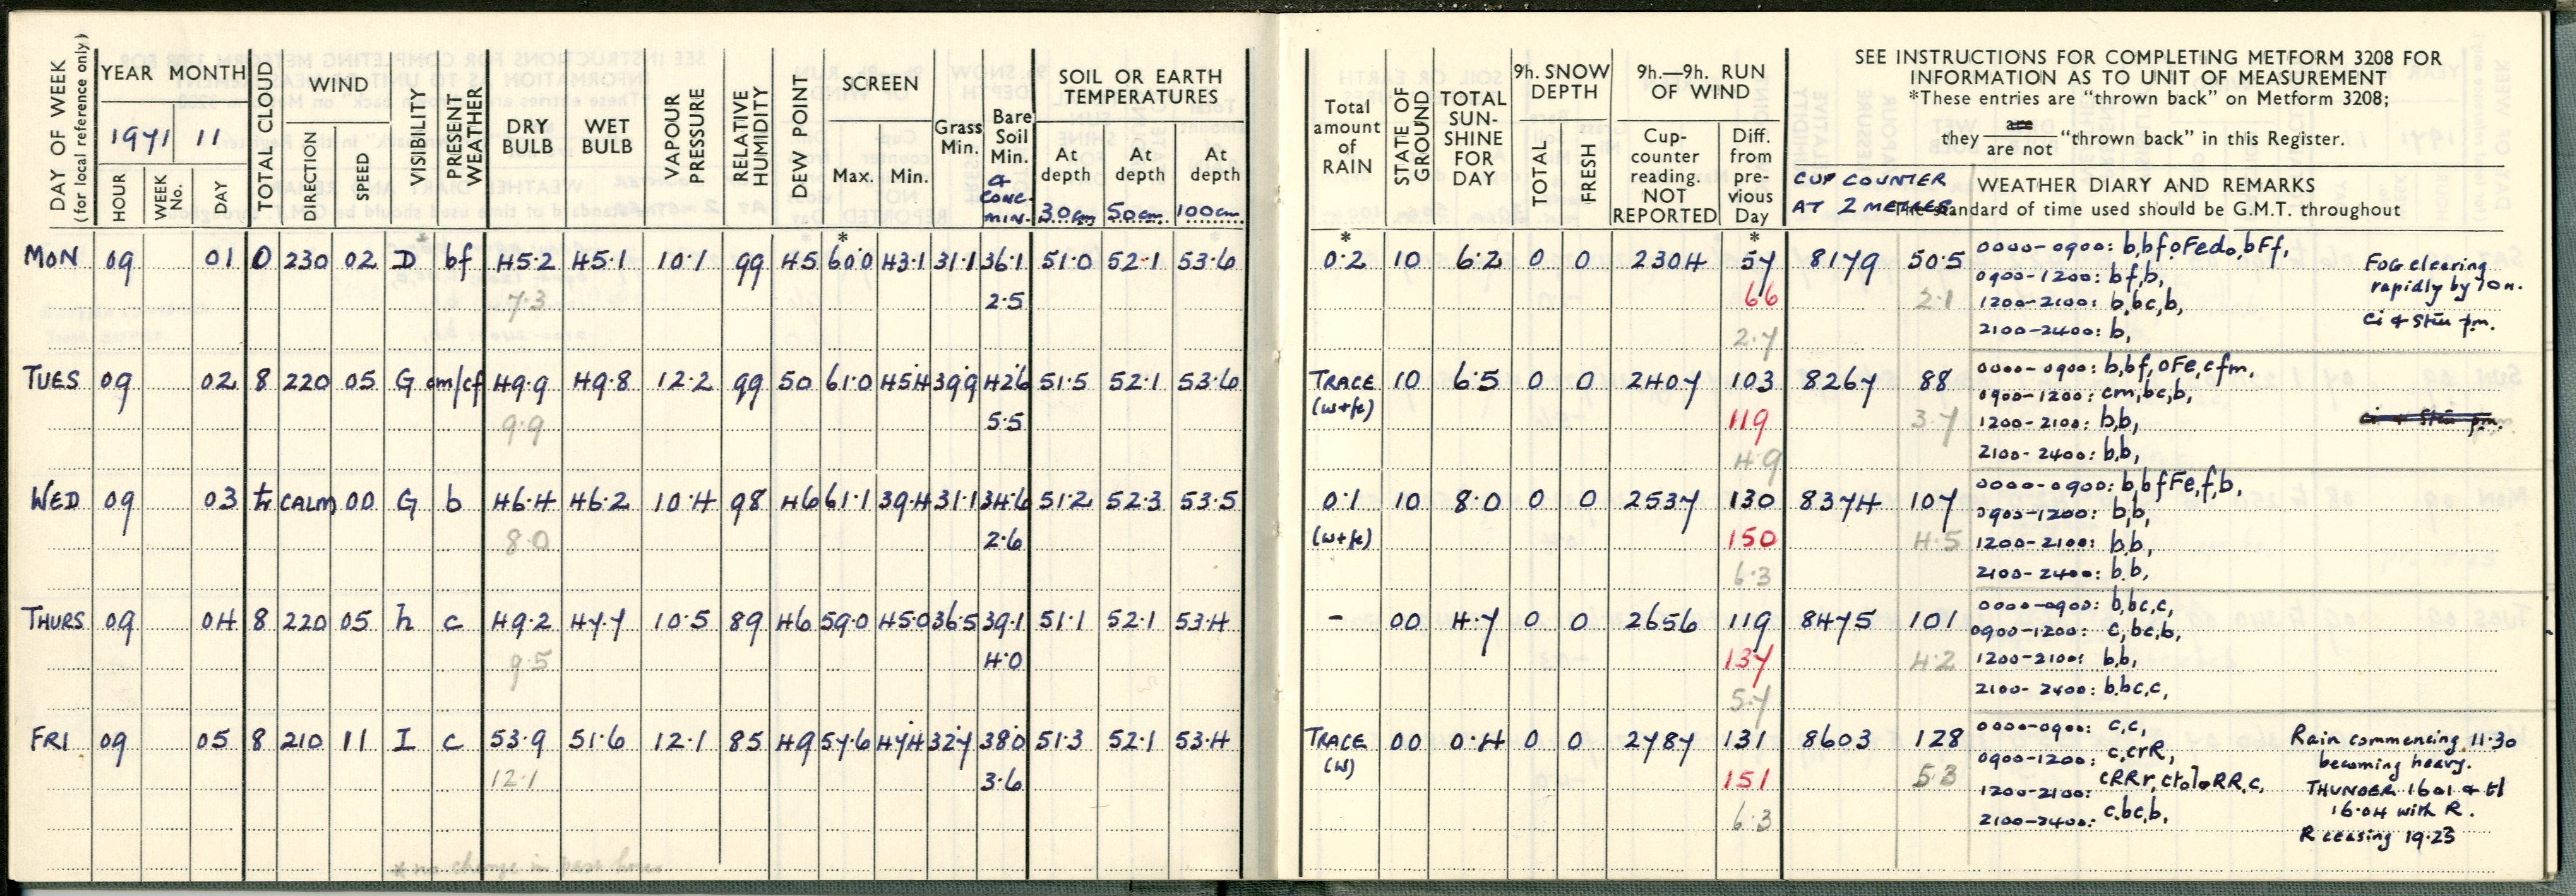 DAY OF WEEK (for local reference only)
YEAR MONTH
1971 11
HOUR WEEK No. DAY
TOTAL CLOUD
WIND
DIRECTION SPEED
VISIBILITY
PRESENT WEATHER
DRY BULB
WET BULB
VAPOUR PRESSURE
RELATIVE HUMIDITY
DEW POINT
SCREEN
Max. Min.
Grass Min.
Bare Soil Min.
& CONC. MIN.
SOIL OR EARTH TEMPERATURES
At depth 30cm At depth 50cm At depth 100cm
Total amount of RAIN
STATE OF GROUND
TOTAL SUN-SHINE FOR DAY
9h. SNOW DEPTH
TOTAL FRESH
9h.—9h. RUN OF WIND
Cup-counter reading. NOT REPORTED
Diff. from pre-vious Day
SEE INSTRUCTIONS FOR COMPLETING METFORM 3208 FOR
INFORMATION AS TO UNIT OF MEASUREMENT
*These entries are “thrown back” on Metform 3208;
they are / are not “thrown back” in this Register.
CUP COUNTER
AT 2 METRES
WEATHER DIARY AND REMARKS
The standard of time used should be G.M.T. throughout
* * * *
MON 09 01 0 230 02 D bf 45.2 45.1 10.1 99 45 60.0 43.1 31.1 36.1 51.0 52.1 53.6 0.2 10 6.2 0 0 2304 57 8179 50.5
7.3 2.5 66 2.1
2.7
0000-0900: b,bfoFedo,bFf,
0900-1200: bf,b,
1200-2100: b,bc,b,
2100-2400: b,
FOG clearing
rapidly by 10 h.
Ci & Stcu p.m.
TUES 09 02 8 220 05 G cm/cf 49.9 49.8 12.2 99 50 61.0 45.4 39.9 42.6 51.5 52.1 53.6 TRACE 10 6.5 0 0 2407 103 8267 88
(w+fe)
9.9 5.5 119 3.7
4.9
0000-0900: b,bf,oFe,cfm,
0900-1200: cm,bc,b,
1200-2100: b,b,
2100-2400: b,b,
Ci & Stcu p.m.
WED 09 03 CALM 00 G b 46.4 46.2 10.4 98 46 61.1 39.4 31.1 34.6 51.2 52.3 53.5 0.1 10 8.0 0 0 2537 130 8374 107
(w+fe)
8.0 2.6 150 4.5
6.3
0000-0900: b,bfFe,f,b,
0900-1200: b,b,
1200-2100: b,b,
2100-2400: b,b,
THURS 09 04 8 220 05 h c 49.2 47.7 10.5 89 46 59.0 45.0 36.5 39.1 51.1 52.1 53.4 - 00 4.7 0 0 2656 119 8475 101
9.5 4.0 137 4.2
5.7
0000-0900: b,bc,c,
0900-1200: c,bc,b,
1200-2100: b,b,
2100-2400: b,bc,c,
FRI 09 05 8 210 11 I c 53.9 51.6 12.1 85 49 57.6 47.4 32.7 38.0 51.3 52.1 53.4 TRACE 00 0.4 0 0 2787 131 8603 128
(w)
12.1 3.6 151 5.3
6.3
0000-0900: c,c,
0900-1200: c,crR,
1200-2100: cRRr, RR,c,
2100-2400: c,bc,b,
Rain commencing 11.30
becoming heavy.
THUNDER 1601 & tl
16.04 with R.
R ceasing 19.23
* no change in past hour